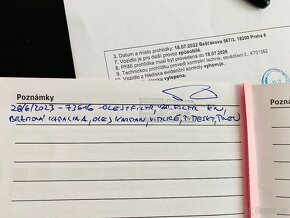 3. Datum to prohlídky: 18.07.2022 Bešťákova 557/3, 18200 Praha 8
7. Vozidlo je pro další provoz způsobilé.
8. Příští prohlídka musí být provedena do 18.07.2026
9. Technickou prohlídku provedl kontrolní technik, osvědčení č.: KT01362
Vozidlo z hlediska evidenční kontroly vyhovuje.
Poznámky
28/6/2023 - 73616 - OLEJ + FILTR, VZD. FILTR KN,
BRZDOVÁ KAPALINA, OLEJ KARDAN, VIDLICE,